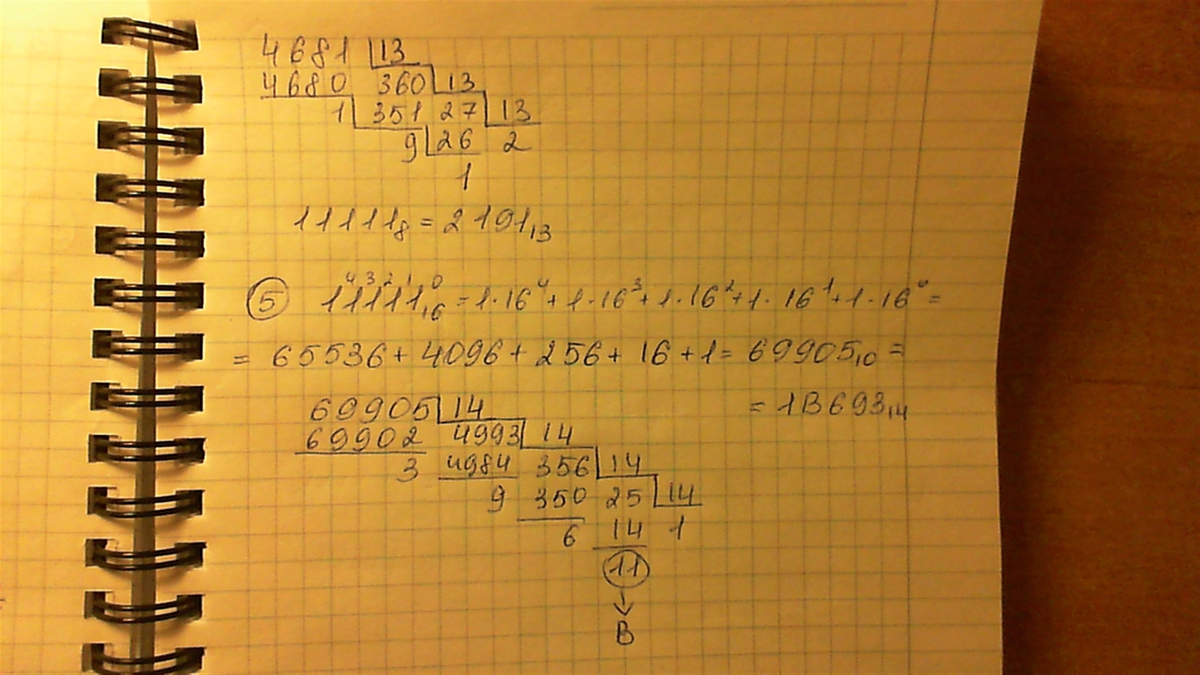 4681 13
4680 360 13
1 351 27 13
9 26 2
1
11111₈ = 2191₁₃
⑤ 1⁴1³1²1¹1⁰₁₆ = 1·16⁴ + 1·16³ + 1·16² + 1·16¹ + 1·16⁰ =
= 65536 + 4096 + 256 + 16 + 1 = 69905₁₀ =
= 1B693₁₄
69905 14
69902 4993 14
3 4984 356 14
9 350 25 14
6 14 1
11
B